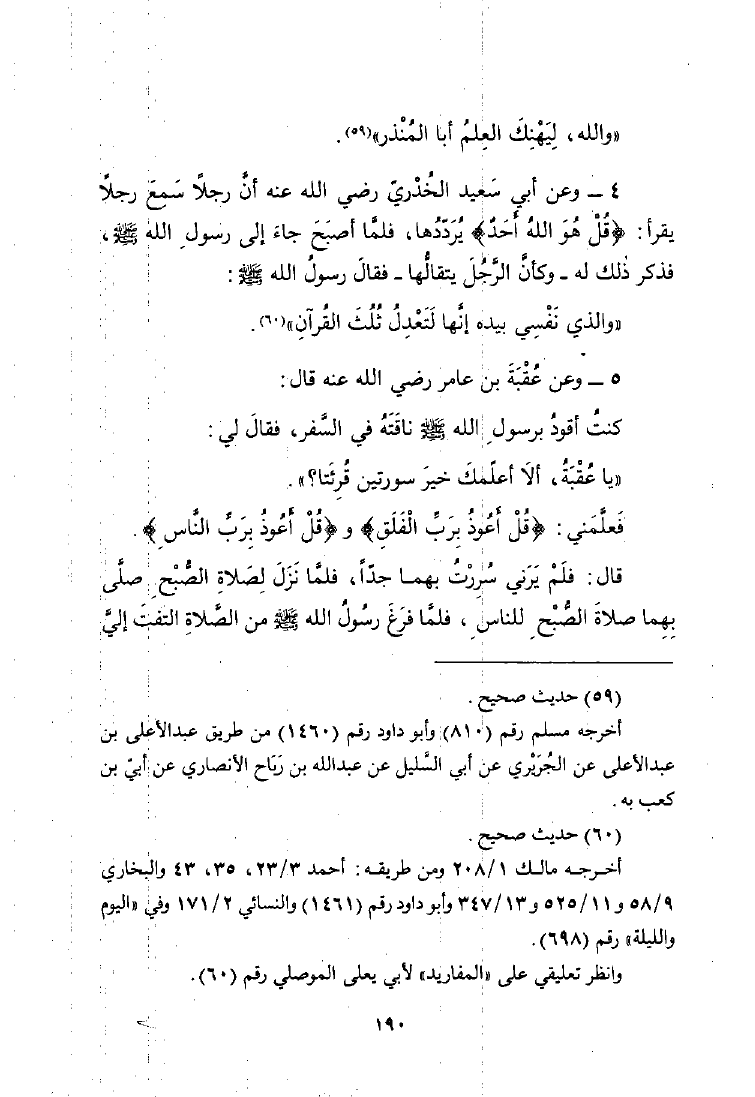 «والله، لِيَهْنِكَ العِلمُ أبا المُنْذر»(٥٩).
٤ ــ وعن أبي سَعيد الخُدْريّ رضي الله عنه أنَّ رجلًا سَمعَ رجلًا
يقرأ: ﴿قُلْ هُوَ اللهُ أَحَدٌ﴾ يُرَدِّدُها، فلمَّا أصبَحَ جاءَ إلى رسولِ الله ﷺ،
فذكر ذٰلك له ـ وكأنَّ الرَّجُلَ يتقالُّها ـ فقالَ رسولُ الله ﷺ:
«والذي نَفْسِي بيده إنَّها لَتَعْدِلُ ثُلُثَ القُرآنِ»(٦٠).
٥ ــ وعن عُقْبَةَ بن عامر رضي الله عنه قال:
كنتُ أقودُ برسولِ الله ﷺ ناقَتَهُ في السَّفر، فقالَ لي:
«يا عُقْبَةُ، ألَا أعلّمكَ خيرَ سورتين قُرِئَتا؟».
فَعلَّمَني: ﴿قُلْ أَعُوذُ بِرَبِّ الْفَلَقِ﴾ و ﴿قُلْ أَعُوذُ بِرَبِّ النَّاسِ﴾.
قال: فلَمْ يَرَني سُرِرْتُ بهمـا جدّاً، فلمَّا نَزَلَ لِصَلاةِ الصُّبْحِ صلَّى
بِهِما صلاةَ الصُّبْحِ للناسِ، فلمَّا فرَغَ رسُولُ الله ﷺ من الصَّلاةِ التفتَ إليَّ
(٥٩) حديث صحيح.
أخرجه مسلم رقم (٨١٠) وأبو داود رقم (١٤٦٠) من طريق عبدالأعلى بن
عبدالأعلى عن الجُرَيْري عن أبي السَّليل عن عبدالله بن رَبَاح الأنصاري عن أبيّ بن
كعب به.
(٦٠) حديث صحيح.
أخـرجـه مالـك ٢٠٨/١ ومن طريقـه: أحمد ٢٣/٣، ٣٥، ٤٣ والبخاري
٥٨/٩ و٥٢٥/١١ و٣٤٧/١٣ وأبو داود رقم (١٤٦١) والنسائي ١٧١/٢ وفي «اليوم
والليلة» رقم (٦٩٨).
وانظر تعليقي على «المفاريد» لأبي يعلى الموصلي رقم (٦٠).
١٩٠